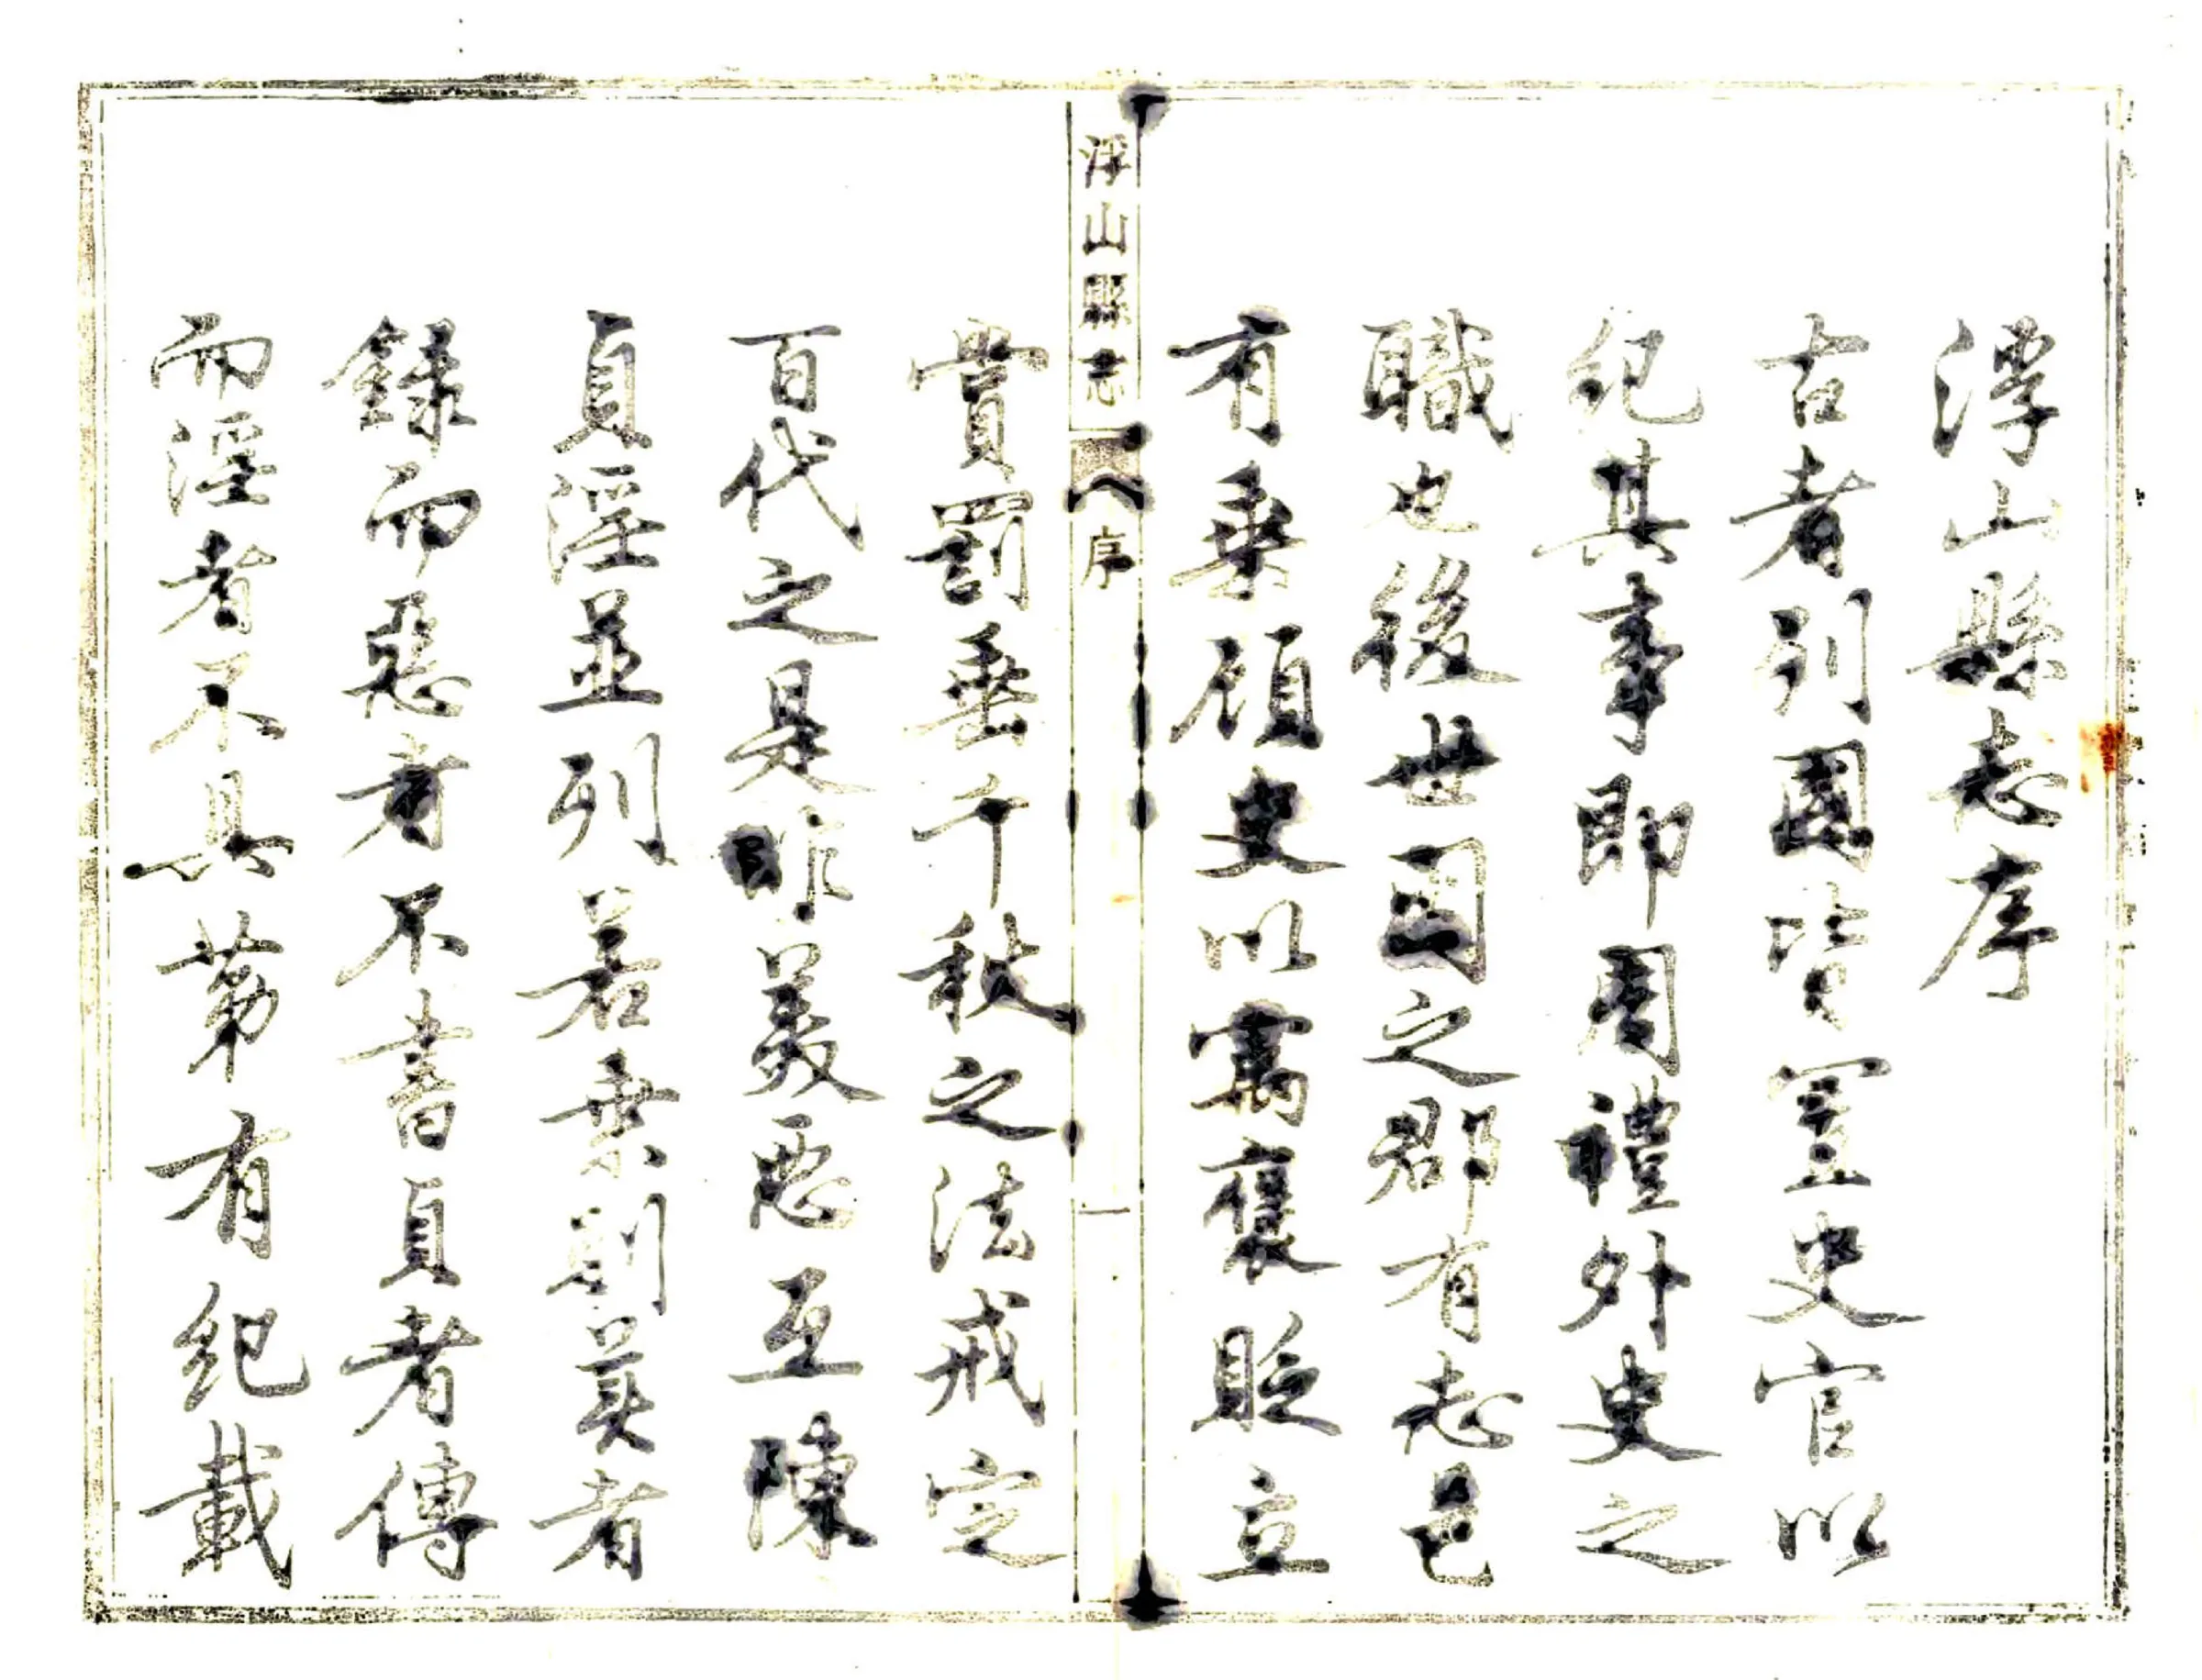 浮山縣志序
古者列國皆置史官以
紀其事即周禮外史之
職也後世國之郡有志邑
有乗顧史以寓褒貶立
浮山縣志 序 一
賞罰垂千秋之法戒定
百代之是非美惡互陳
貞淫並列若乗則美者
錄而惡者不書貞者傳
而淫者不具第有紀載